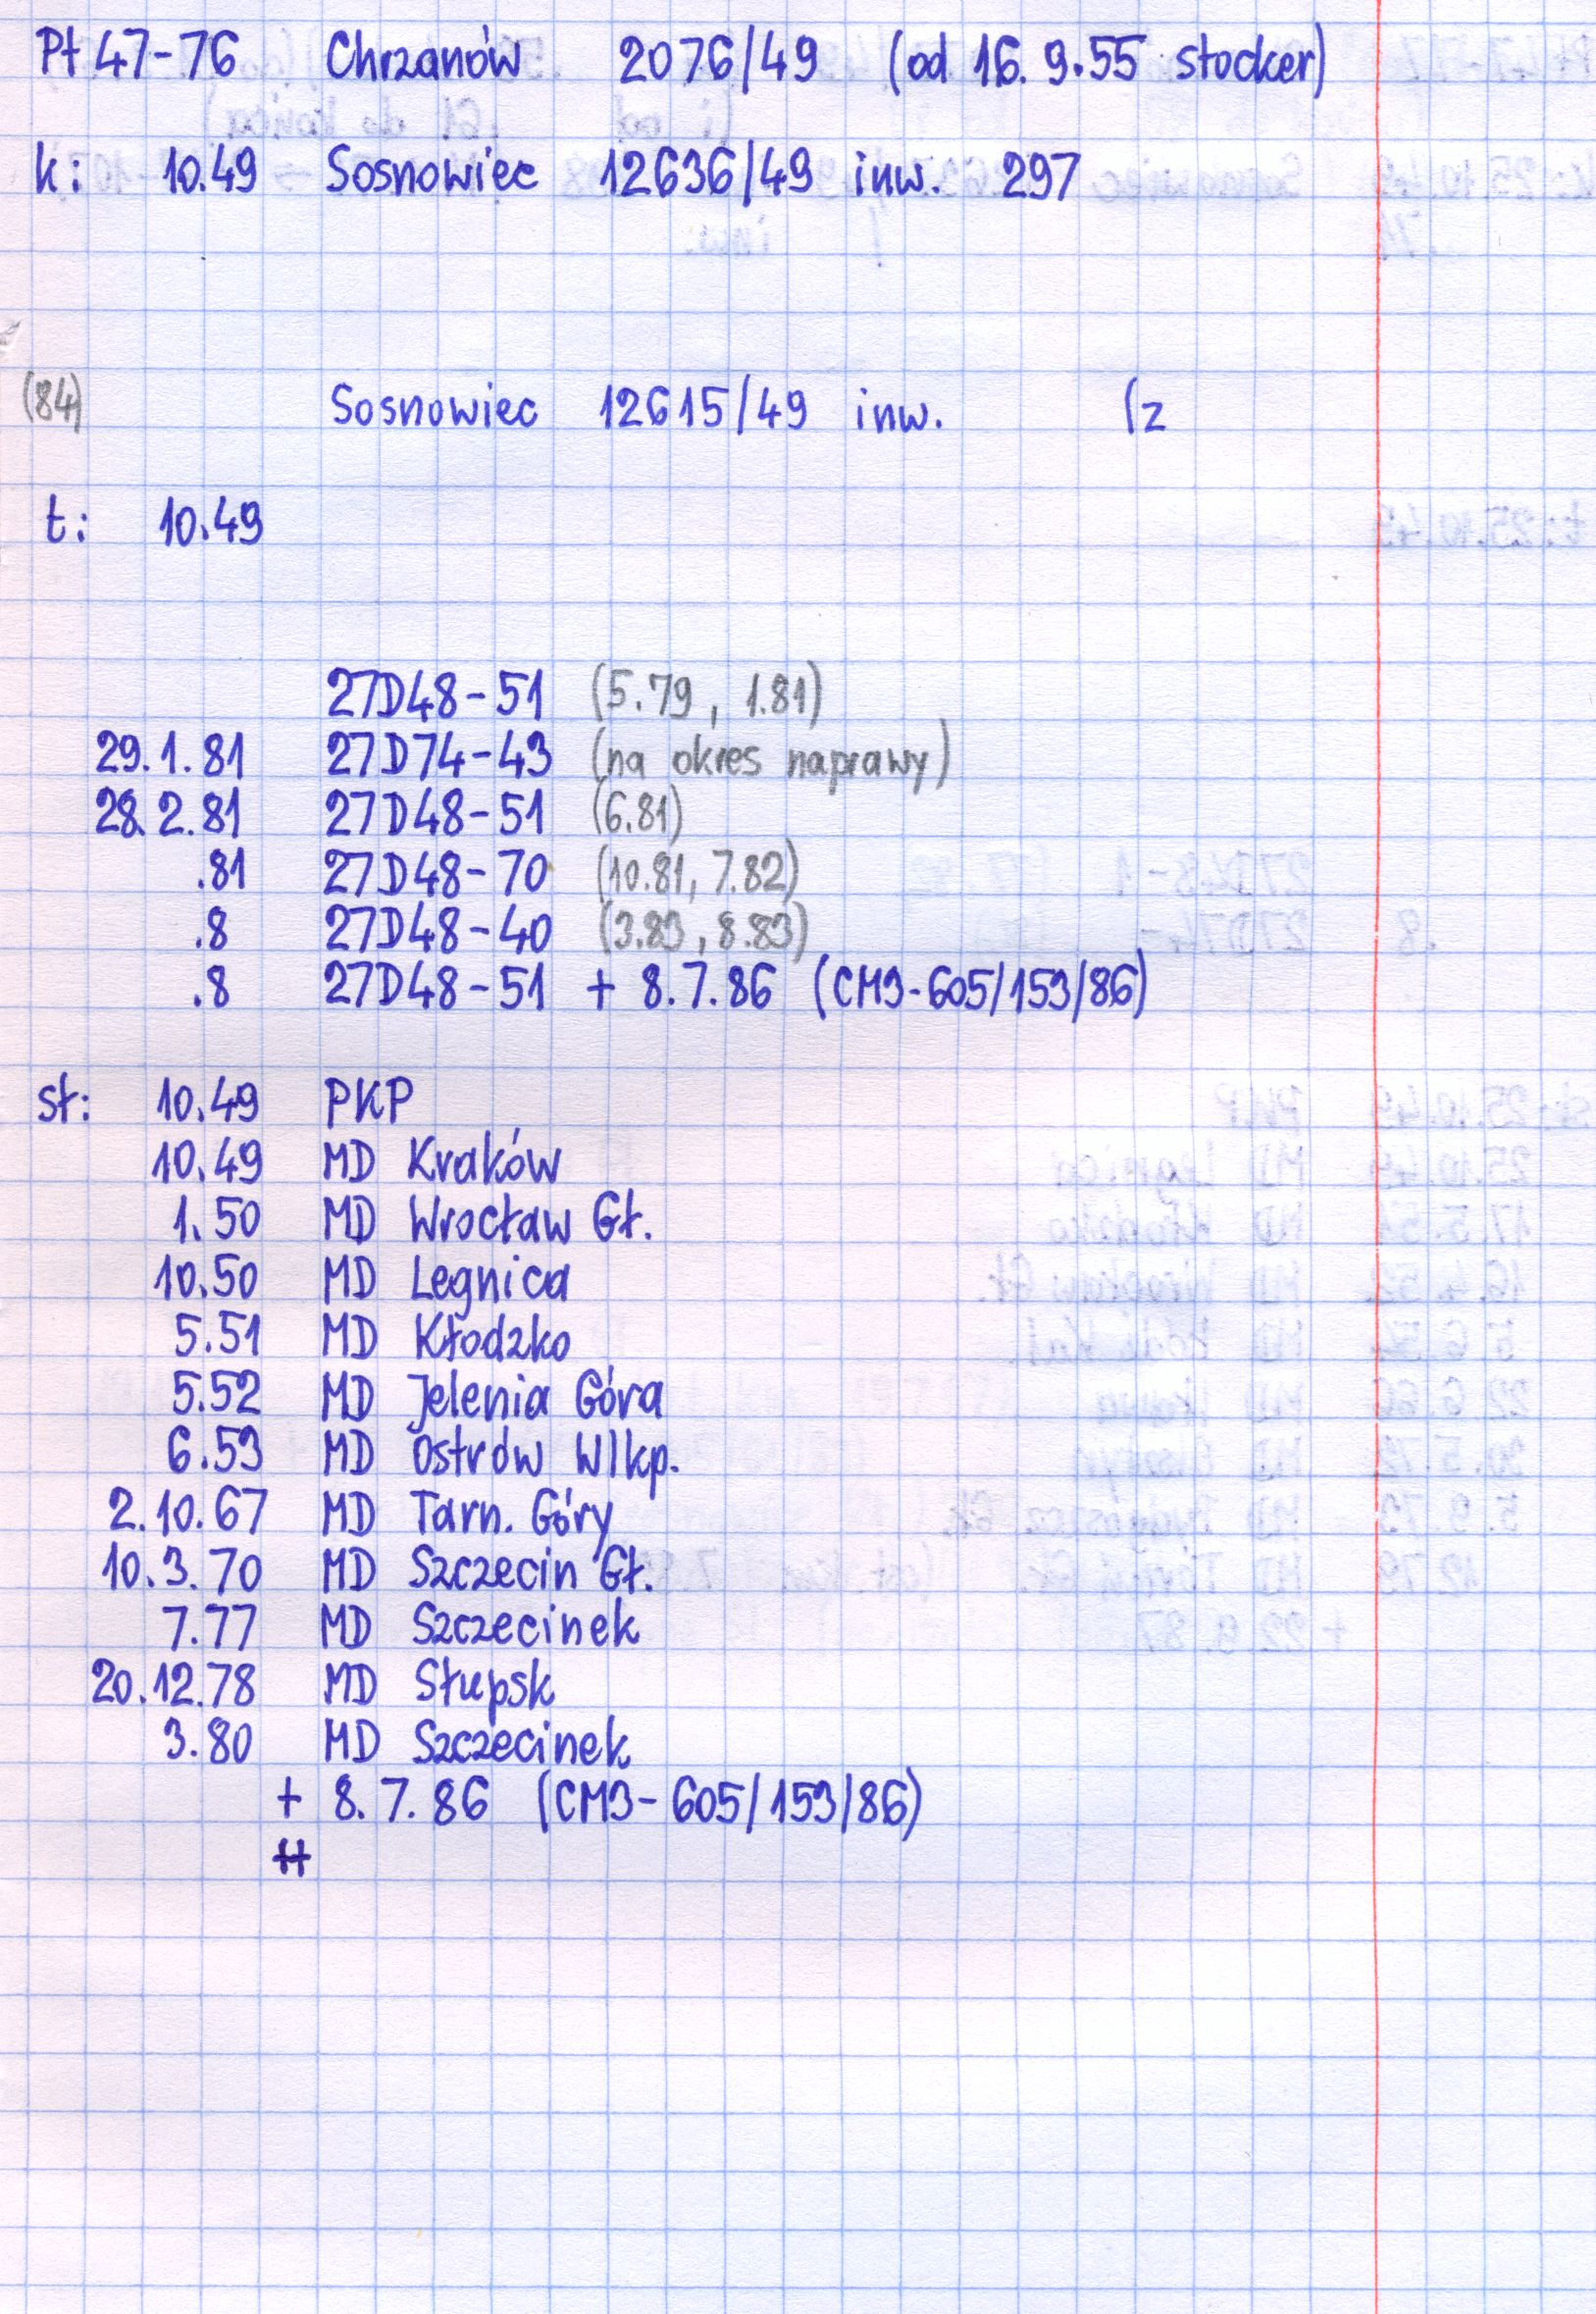 Pt 47-76 Chrzanów 2076/49 (od 16.9.55 stocker)
k: 10.49 Sosnowiec 12636/49 inw. 297
(84) Sosnowiec 12615/49 inw. (z
t: 10.49
27D48-51 (5.79, 1.81)
29.1.81 27D74-43 (na okres naprawy)
28.2.81 27D48-51 (6.81)
.81 27D48-70 (10.81, 7.82)
.8 27D48-40 (3.83, 8.83)
.8 27D48-51 + 8.7.86 (CM3-605/153/86)
st: 10.49 PKP
10.49 MD Kraków
1.50 MD Wrocław Gł.
10.50 MD Legnica
5.51 MD Kłodzko
5.52 MD Jelenia Góra
6.53 MD Ostrów Wlkp.
2.10.67 MD Tarn. Góry
10.3.70 MD Szczecin Gł.
7.77 MD Szczecinek
20.12.78 MD Słupsk
3.80 MD Szczecinek
+ 8.7.86 (CM3-605/153/86)